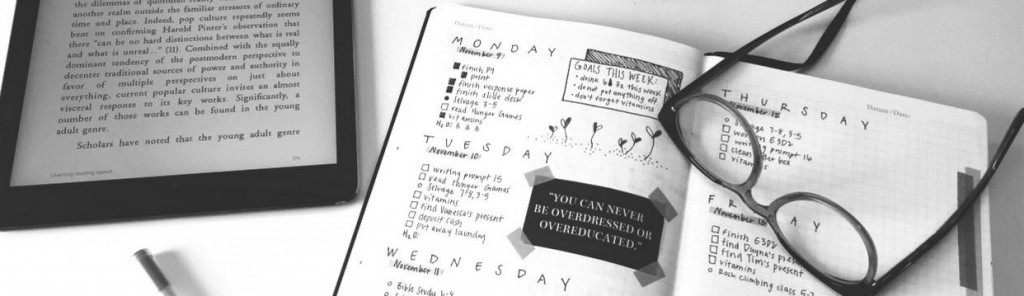 the dilemmas of quotidian
another realm outside the familiar stresses of ordinary
time and place. Indeed, pop culture repeatedly seems
bent on confirming Harold Pinter's observation that
there "can be no hard distinctions between what is real
and what is unreal..." (11). Combined with the equally
dominant tendency of the postmodern perspective to
decenter traditional sources of power and authority in
favor of multiple perspectives on just about
everything, current popular culture invites an almost
visceral response to its key works. Significantly, a
number of those works can be found in the young
adult genre.
Scholars have noted that the young adult genre
Learning reading speed
Datum / Date:
MONDAY
November 9:
finish P4
print
finish response paper
finish slide deck
Selvage 3-5
read Hunger Games
vitamins
H₂O:
GOALS THIS WEEK:
• drink 3x this week
• do not put anything off
• don't forget vitamins
TUESDAY
November 10:
writing prompt 15
read Hunger Games
Selvage 7-8, 3-5
vitamins
find Vanessa's present
deposit cash
put away laundry
H₂O:
"YOU CAN NEVER
BE OVERDRESSED OR
OVEREDUCATED."
WEDNESDAY
November 11:
Bible Study
Datum / Date:
THURSDAY
November
7-8, 3-5
6302
writing prompt 16
clean box
vitamins
FRIDAY
November
finish 6302
find Dayna's
find Tim's present
vitamins
Rock climbing class 5-7